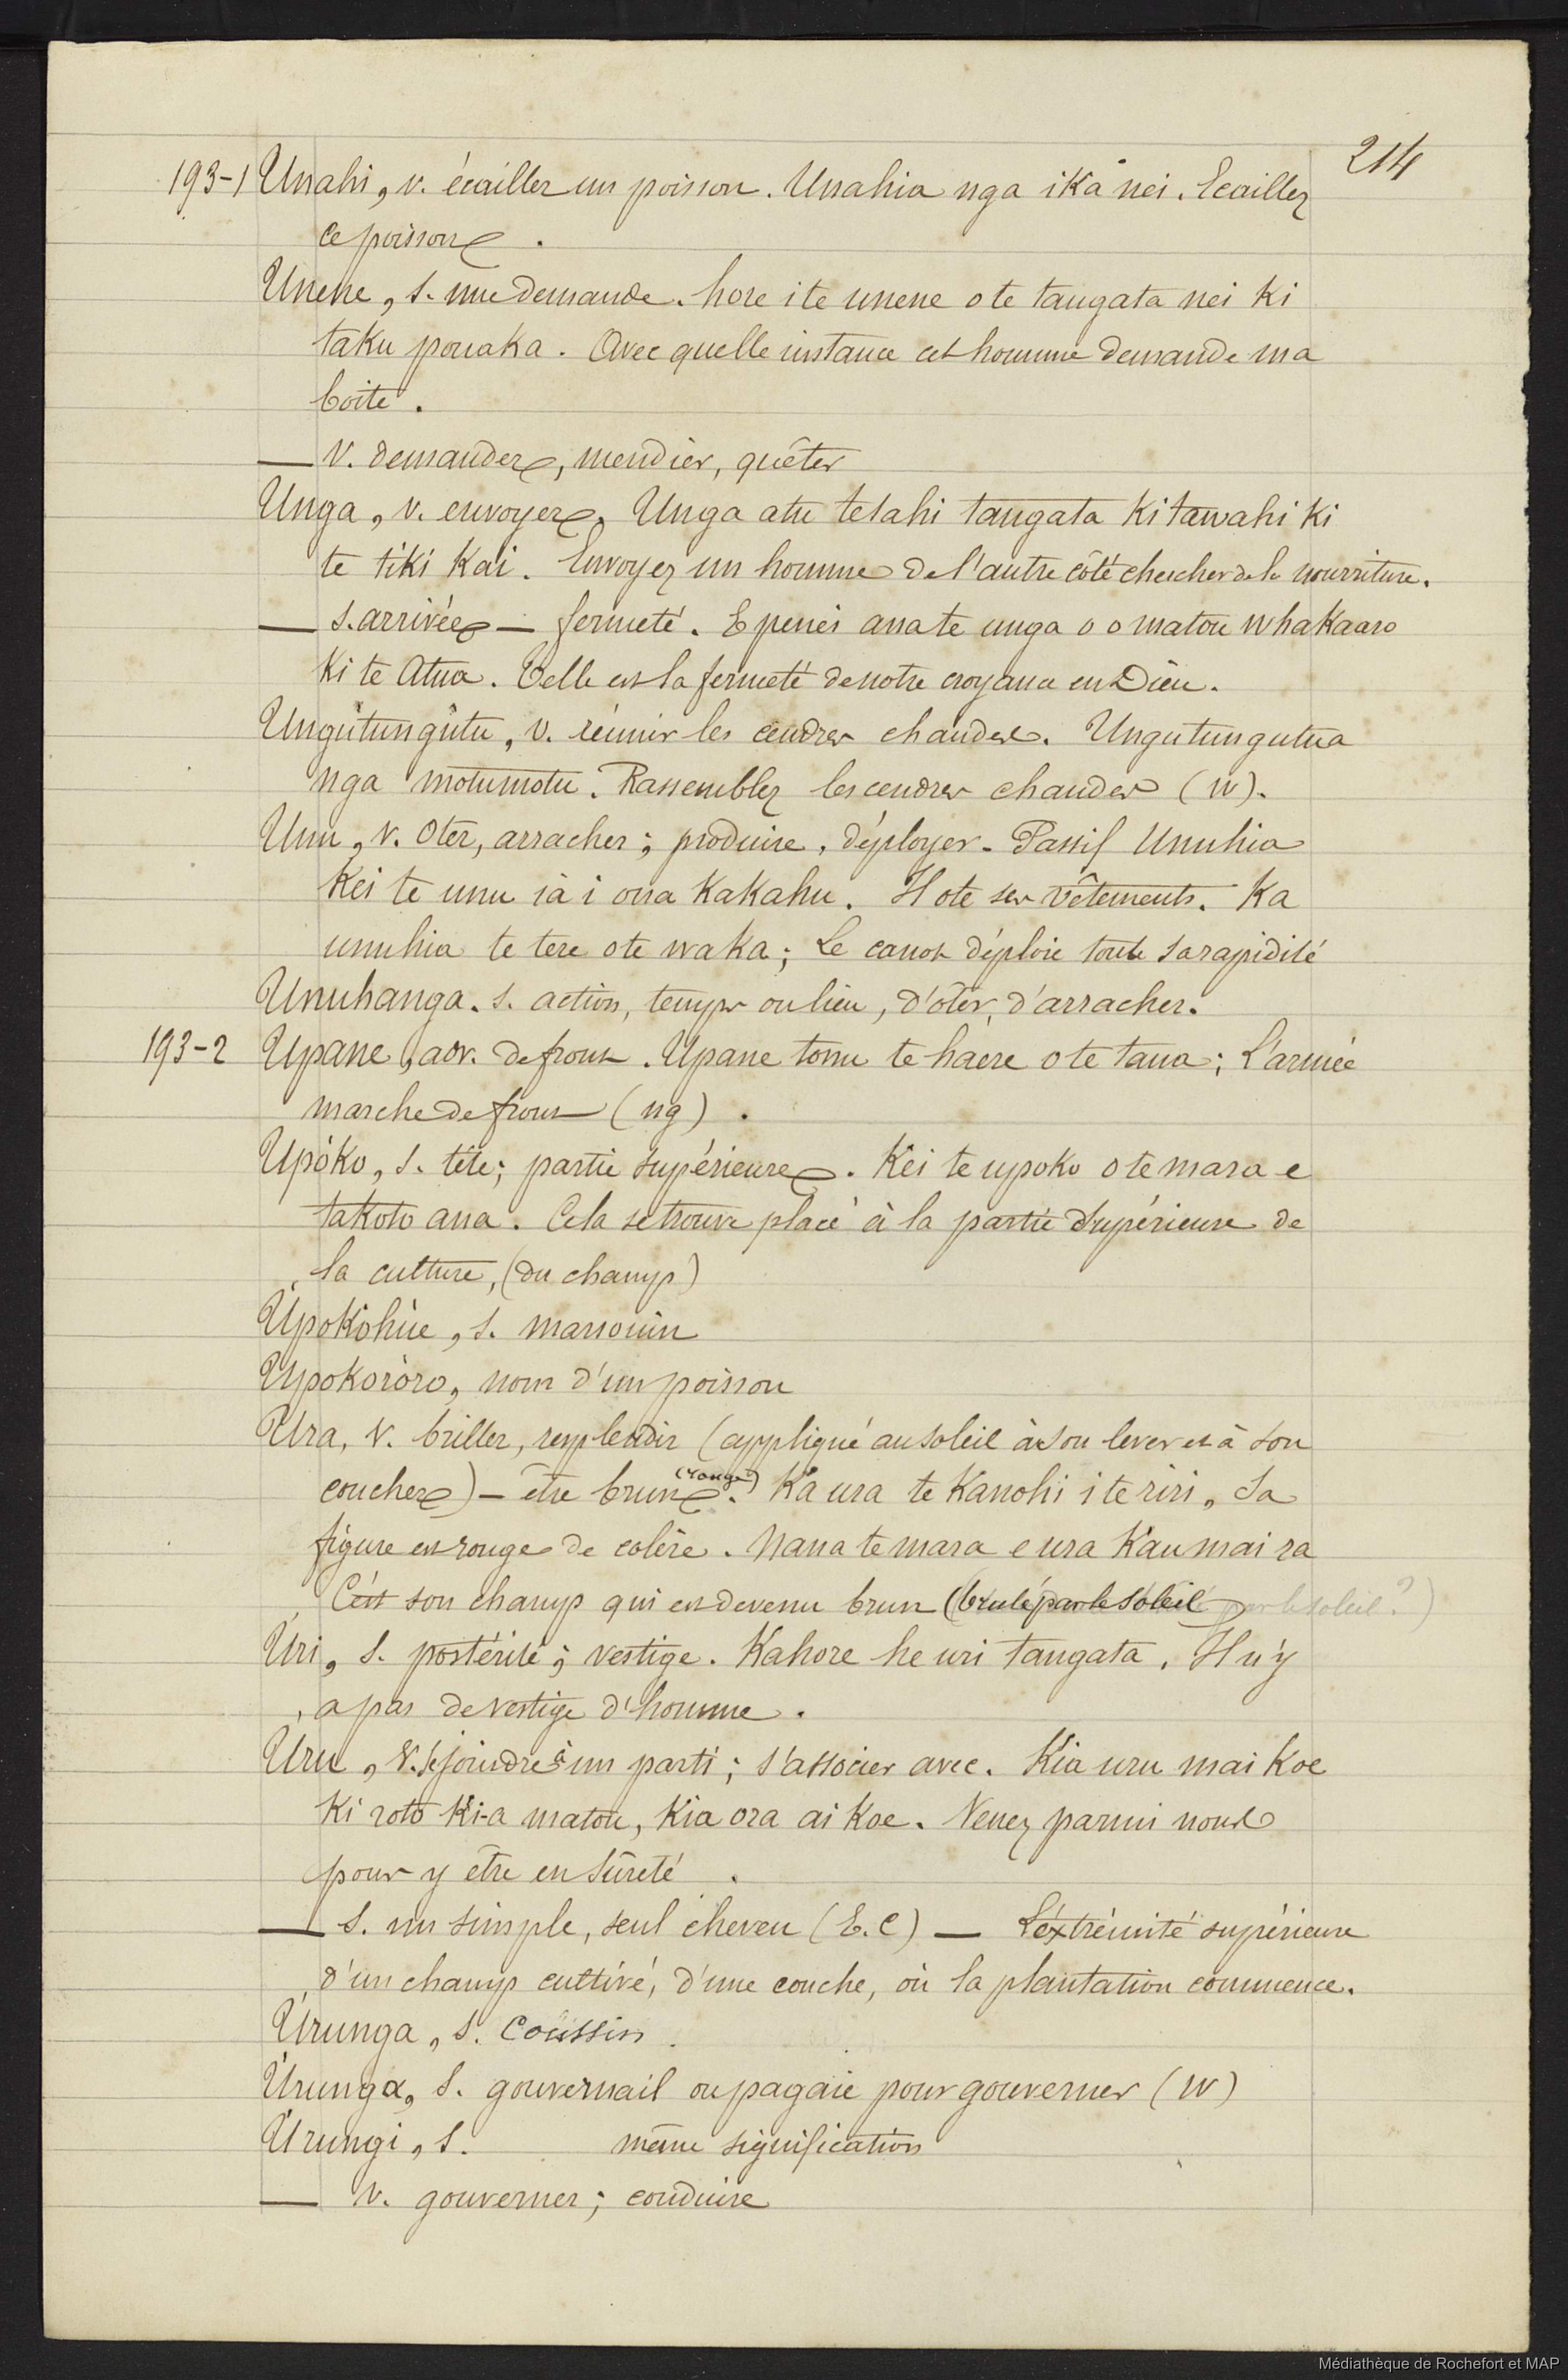 214
193-1 Unahi, v. écailler un poisson. Unahia nga ika nei. Ecaillez
ce poisson.
Unene, s. une demande. hore i te unene o te tangata nei ki
taku pouaka. Avec quelle instance cet homme demande ma
boite.
— v. demander, mendier, quêter
Unga, v. envoyer. Unga atu tetahi tangata ki tawahi ki
te tiki kai. Envoyez un homme de l'autre côté chercher de la nourriture.
— s. arrivée — fermeté. E penei ana te unga o o matou whakaaro
ki te Atua. Telle est la fermeté de notre croyance en Dieu.
Ungutungutu, v. réunir les cendres chaudes. Ungutungutua
nga motumotu. Rassemblez les cendres chaudes (W).
Unu, v. Oter, arracher; produire, déployer - Passif Unuhia
Kei te unu ia i ona kakahu. Il ote ses vêtements. Ka
unuhia te tere o te waka; Le canot déploie toute sa rapidité
Unuhanga. s. action, temps ou lieu, d'ôter, d'arracher.
193-2 Upane, adv. de front. Upane tonu te haere o te taua; L'armée
marche de front (ng).
Upóko, s. tête; partie supérieure. Kei te upoko o te mara e
takoto ana. Cela se trouve placé à la partie supérieure de
la culture, (du champ)
Úpokohùe, s. marsouin
Upokoróro, nom d'un poisson
Ura, v. briller, resplendir (appliqué au soleil à son lever et à son
coucher) — être brun (rouge). Ka ura te kanohi i te riri, Sa
figure est rouge de colère. Nana te mara e ura kau mai ra
C'est son champ qui est devenu brun (brulé par le soleil par le soleil?)
Úri, s. postérité; vestige. Kahore he uri tangata, Il n'y
a pas de vestige d'homme.
Uru, v. se joindre à un parti; s'associer avec. Kia uru mai koe
ki roto ki-a matou, kia ora ai koe. Venez parmi nous
pour y être en sûreté.
— s. un simple, seul cheveu (E.C) — L'éxtrémité supérieure
d'un champ cultivé, d'une couche, où la plantation commence.
Úrunga, s. Coussin.
Úrunga, s. gouvernail ou pagaie pour gouverner (W)
Úrungi, s. même signification
— v. gouverner; conduire
Médiathèque de Rochefort et MAP